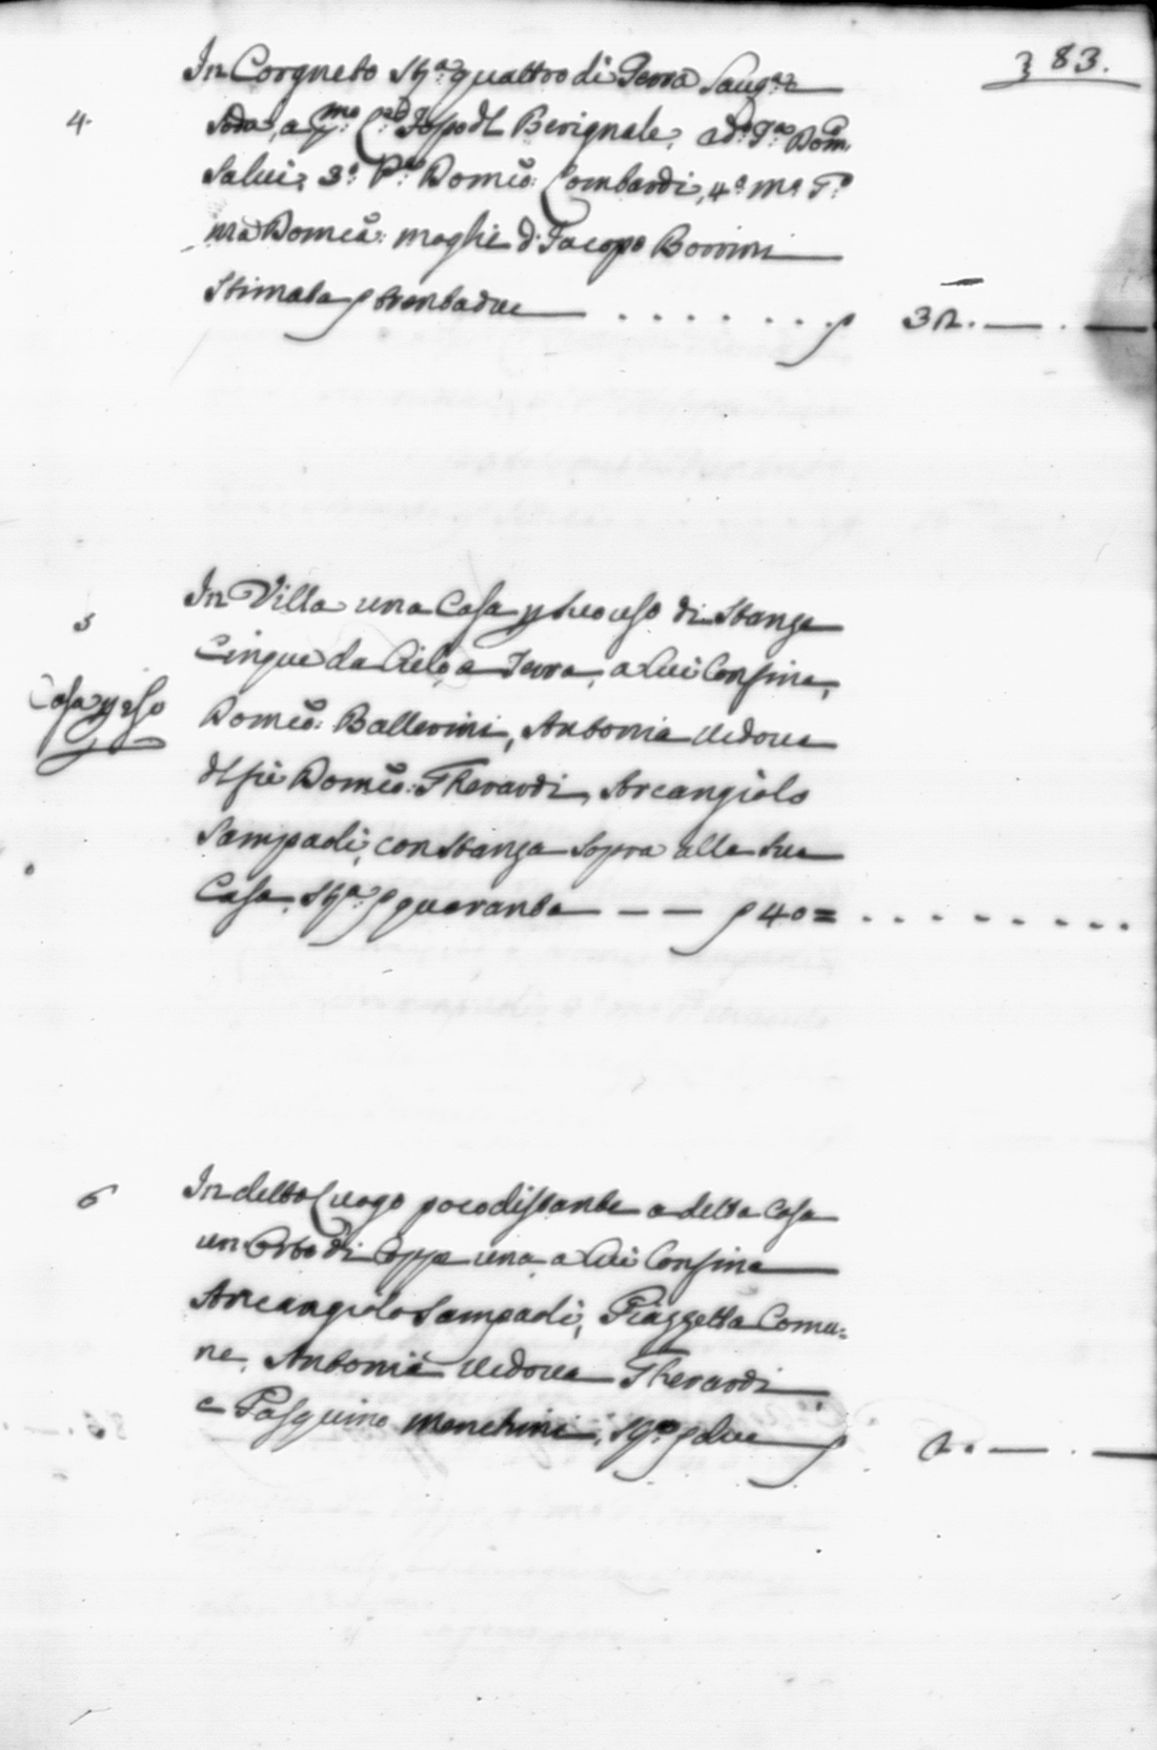 383.
4.
In Corgneto St.ra quattro di Terra
Soda, a p.mo Jsp.o dl Berignale, a Dom.
Salui, 3.o P.re Dom.co Lombardi, 4.o M.a
ma Dom.ca moglie d Jacopo Borrini
Stimata p trentadue . . . . . . . p 32. — . —
5
In Villa una Casa p suo uso di Stanze
Casa p uso
Cinque da Cielo a Terra, a lui Confina,
Dom.co Ballerini, Antonia Vedova
dl fù Dom.co Gherardi, Arcangiolo
Sampaoli, con Stanza sopra alla sua
Casa, St.a p quaranta — — p 40 = . . . . . . . . .
6
In detto Luogo poco distante a detta Casa
un Orto di Coppe una, a lui Confina
Arcangiolo Sampaoli, Piazzetta Comu=
ne, Antonia Vedova Gherardi
e Pasquino Menchini, St.o p due p 2. — . —